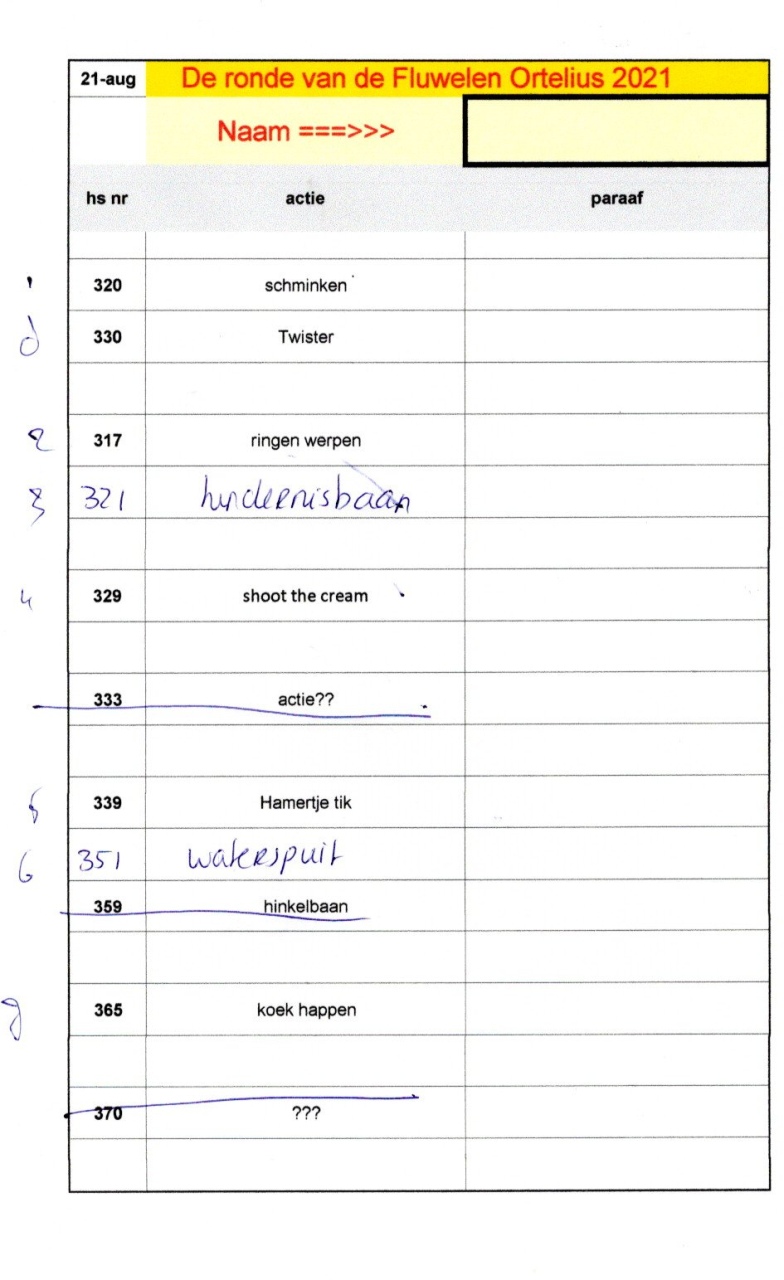 21-aug De ronde van de Fluwelen Ortelius 2021
Naam ===>>>
hs nr actie paraaf
1 320 schminken
330 Twister
2 317 ringen werpen
3 321 hindernisbaan
4 329 shoot the cream
333 actie??
5 339 Hamertje tik
6 351 waterspuit
359 hinkelbaan
365 koek happen
370 ???